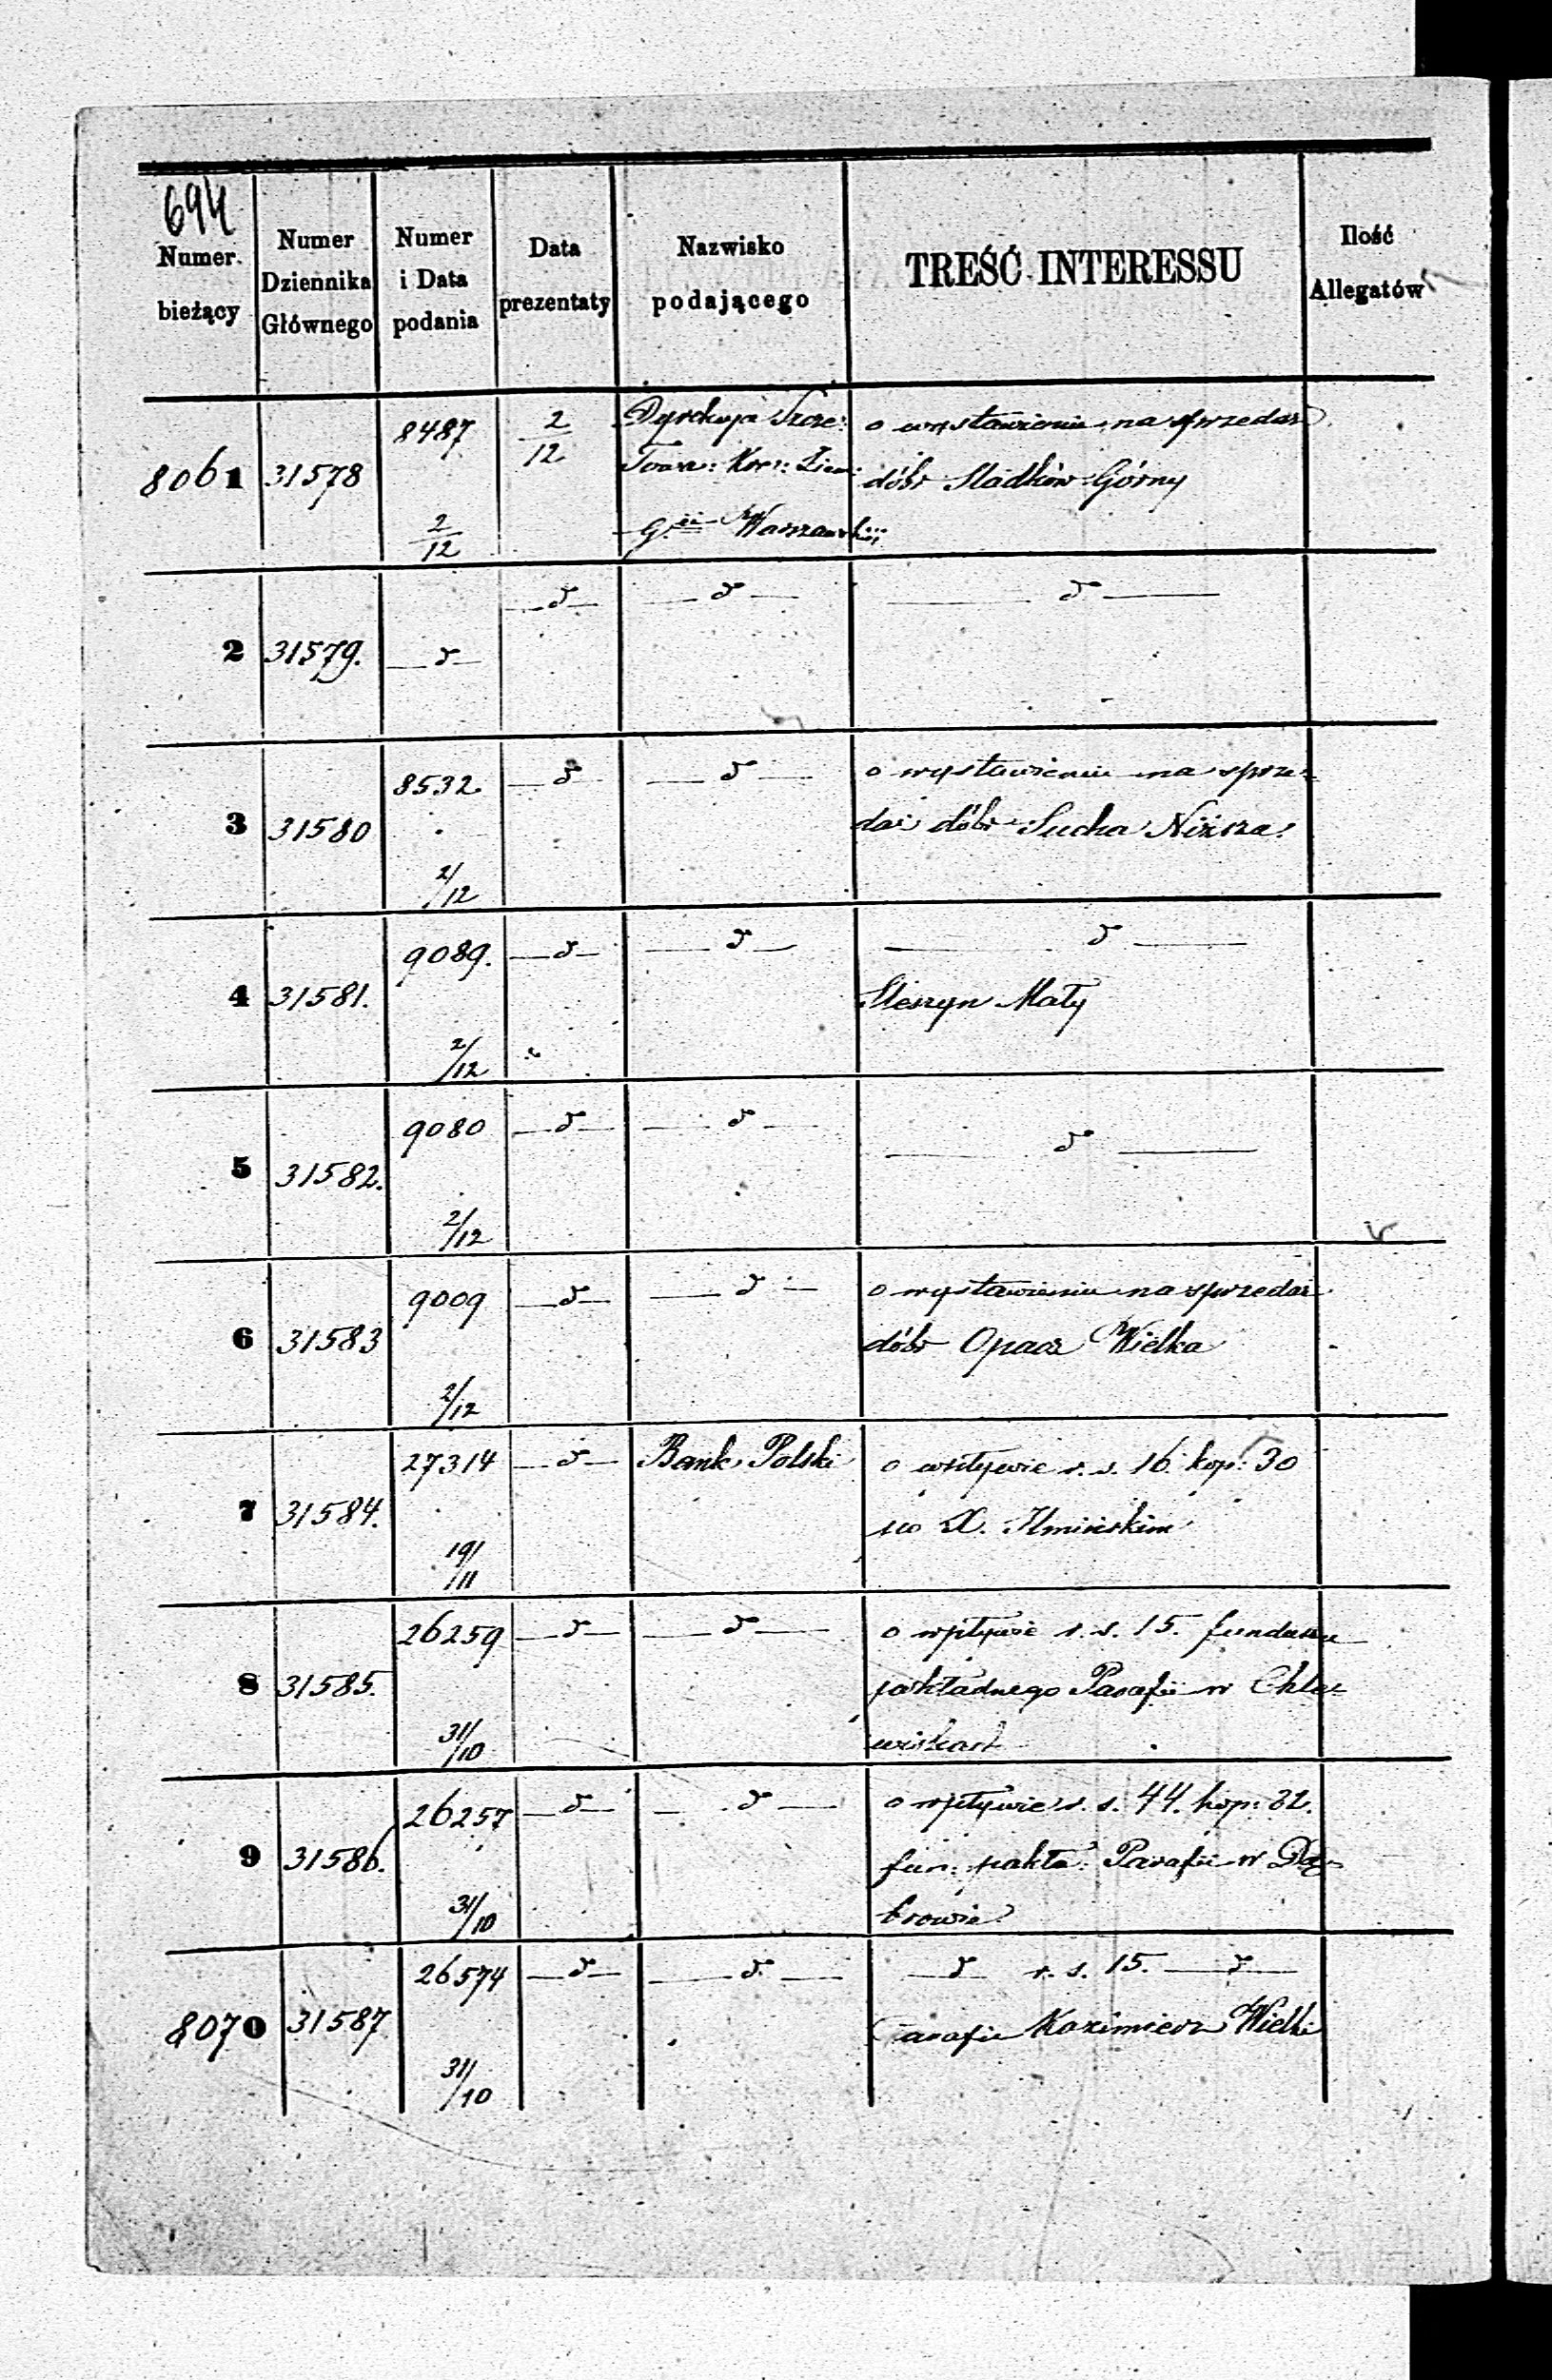 694
Numer bieżący
Numer Dziennika Głównego
Numer i Data podania
Data prezentaty
Nazwisko podającego
TREŚĆ INTERESSU
Ilość Allegatów
8061 31578 8487 2/12 2/12
Dyrekcja Szcze:
Towarz: Kre: Ziem:
Gii Warszawskiej
o wystawieniu na sprzedaż
dóbr Sladków Górny
2 31579. —d— —d— —d— —d—
3 31580 8532. 2/12 —d— —d—
o wystawieniu na sprze-
daż dóbr Sucha Niższa.
4 31581. 9089. 2/12 —d— —d— —d—
Sleszyn Mały
5 31582. 9080 2/12 —d— —d— —d—
6 31583 9009 2/12 —d— —d—
o wystawieniu na sprzedaż
dóbr Opacz Wielka
7 31584. 27314 19/11 —d— Bank Polski
o wpływie r. s. 16 kop: 30
po X.
8 31585. 26259 31/10 —d— —d—
o wpływie r. s. 15. funduszu
pokładnego Parafii w Chle-
wiskach
9 31586. 26257 31/10 —d— —d—
o wpływie r. s. 44. kop: 32.
fun: pokła: Parafii w Dą-
browie
8070 31587 26574 31/10 —d— —d— —d— r. s. 15. —d—
Parafii Kazimierz Wielki